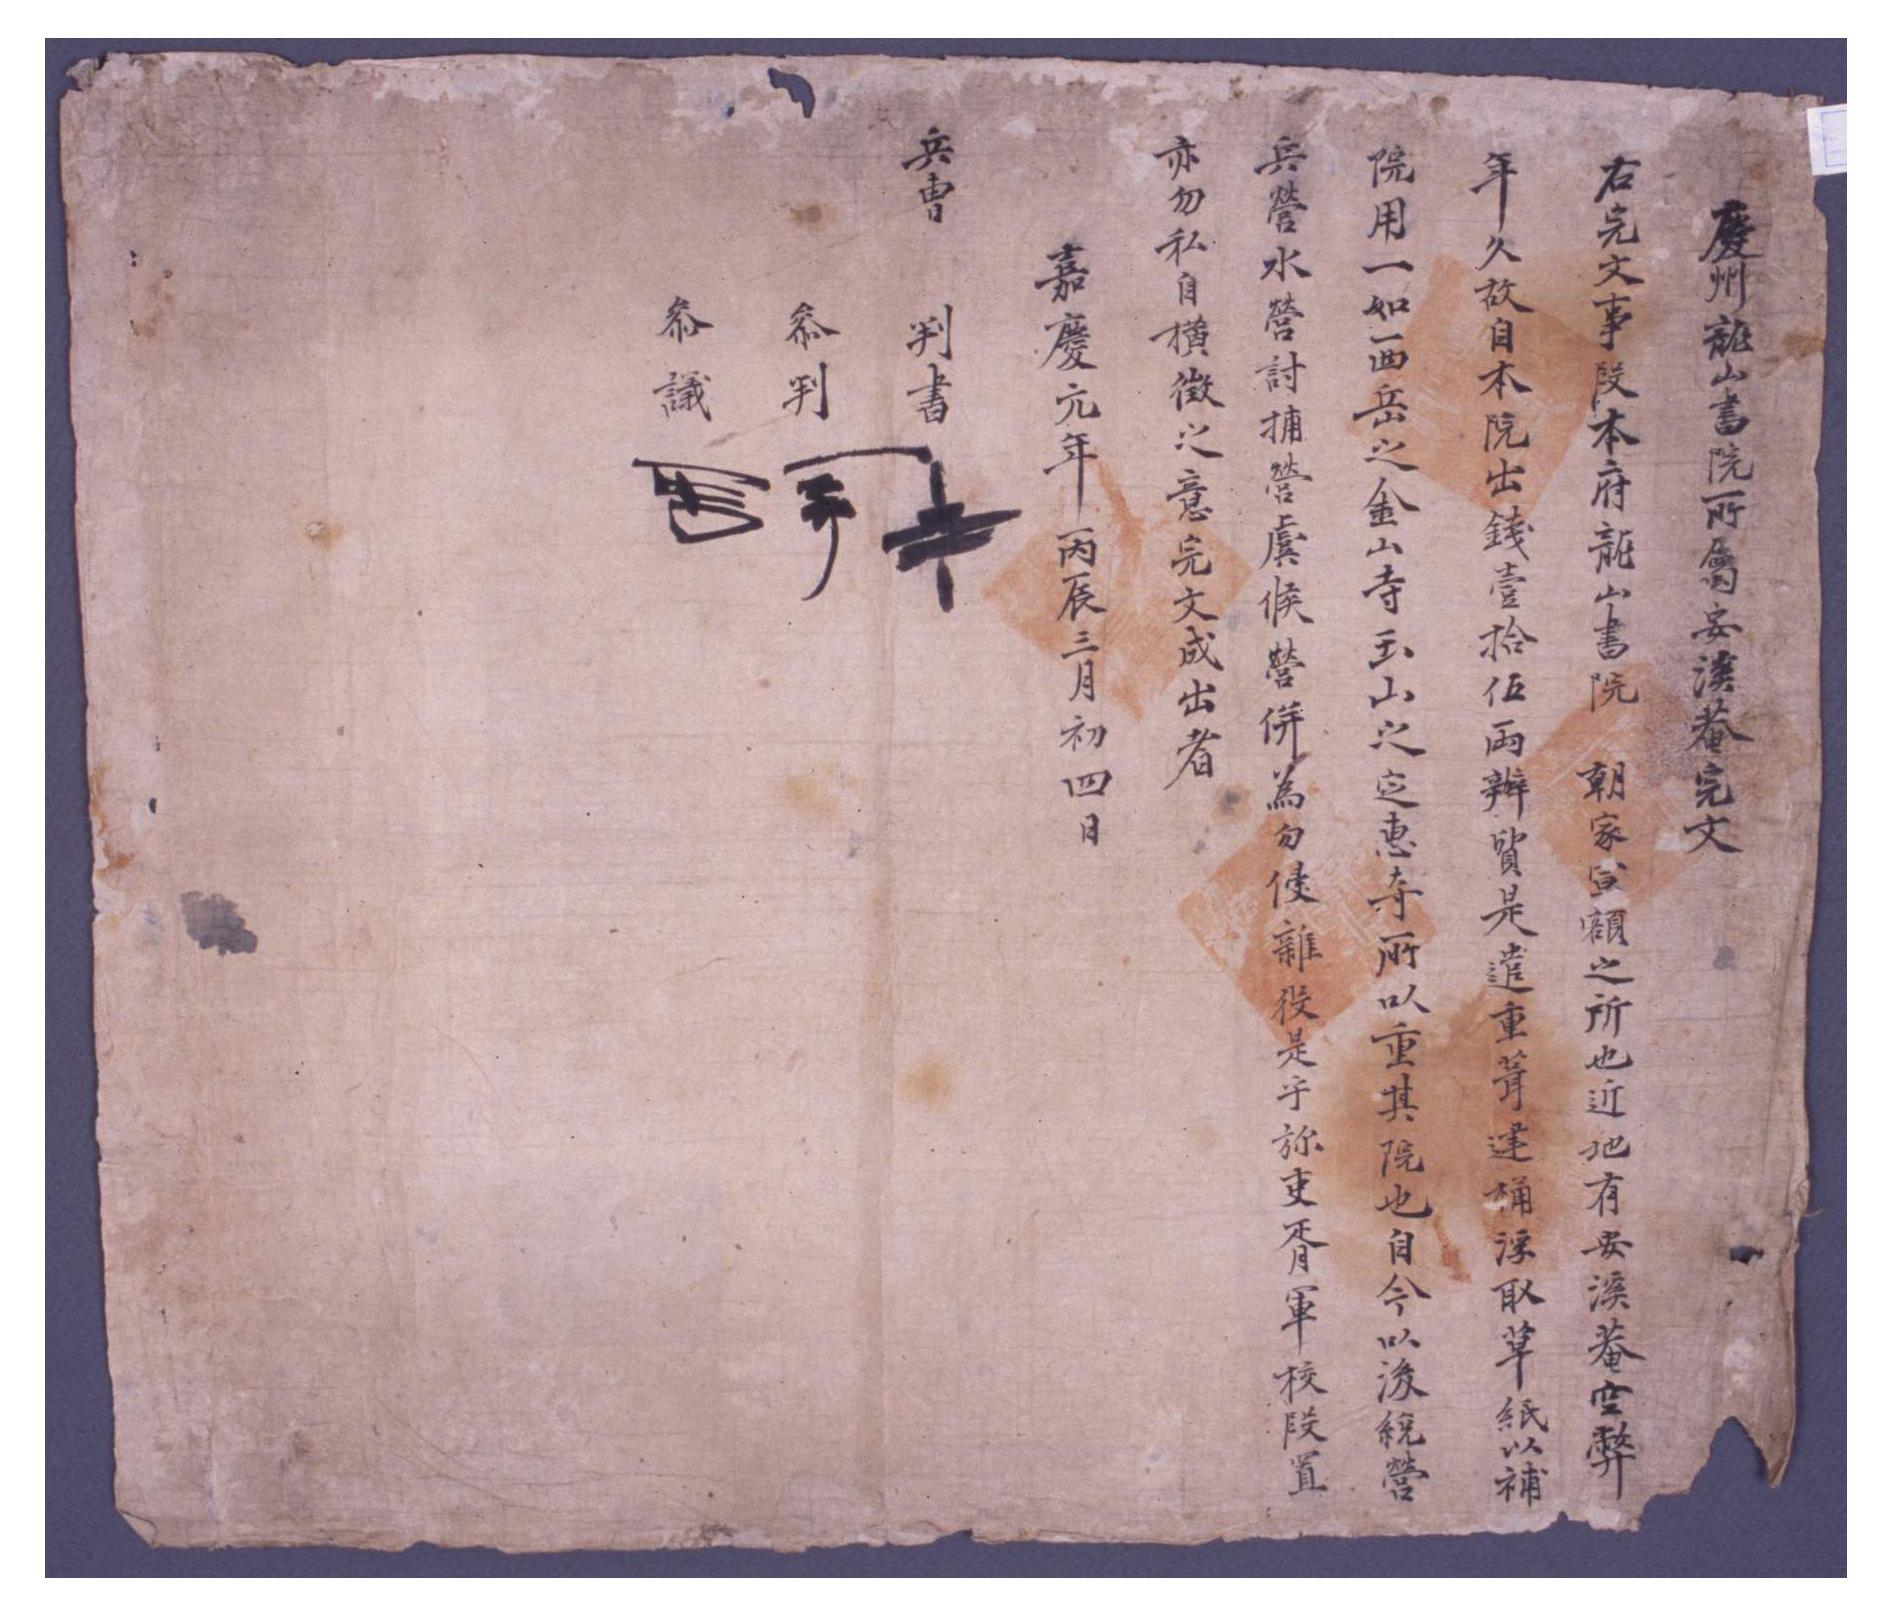 慶州龍山書院所屬安溪菴完文
右完文事段本府龍山書院 朝家宣額之所也近地有安溪菴空弊
年久故自本院出錢壹拾伍兩辦貿是遣重葺建桶浮取草紙以補
院用一如西岳之金山寺玉山之定惠寺所以重其院也自今以後統營
兵營水營討捕營虞候營併爲勿侵雜役是乎旀吏胥軍校段置
亦勿私自橫徵之意完文成出者
嘉慶元年丙辰三月初四日
兵曺 判書
參判
參議